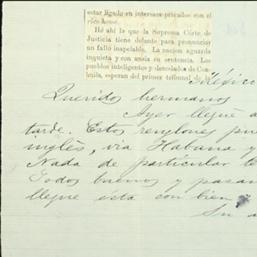 estar ligado en intereses privados con el
Hé ahí lo que la Suprema Corte de
Justicia tiene delante para pronunciar
un fallo inapelable. La nacion aguarda
inquieta y con ansia su sentencia. Los
pueblos inteligentes y
esperan del primer tribunal de la
Méjico
Queridos hermanos
Ayer llegué a
tarde. Estos renglones
inglés, via Habana y
Nada de particular
Todos buenos y
llegue ésta con bien
Su